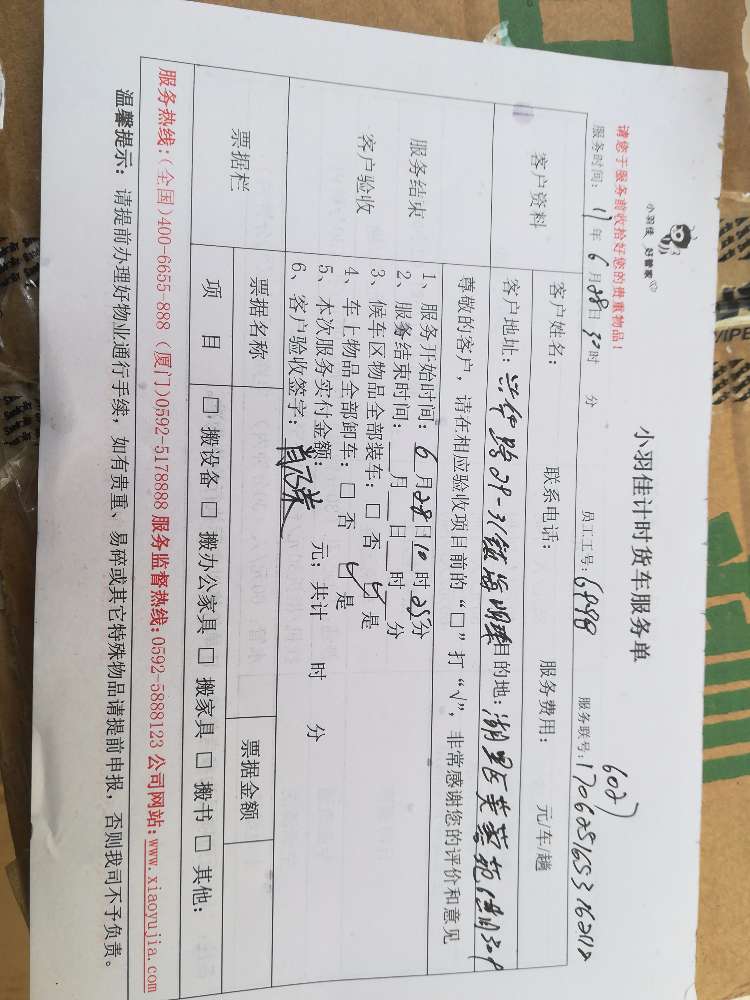 小羽佳 好管家
小羽佳计时货车服务单
请您于服务前收拾好您的贵重物品!
602
服务时间: 17年 6月28日 10时 分 员工工号: 6898 服务联号:
客户资料
客户姓名: 联系电话: 服务费用: 元/车/趟
客户地址: 路29-31 目的地: 湖里区芙蓉苑
服务结束
客户验收
尊敬的客户,请在相应验收项目前的“□”打“√”,非常感谢您的评价和意见
1、服务开始时间: 6月28日10时25分
2、服务结束时间: 月 日 时 分
3、候车区物品全部装车: □ 否 ☑ 是
4、车上物品全部卸车: □ 否 ☑ 是
5、本次服务实付金额: 元; 共计 时 分
6、客户验收签字:
票据栏
票据名称 票据金额
项 目 □ 搬设备 □ 搬办公家具 □ 搬家具 □ 搬书 □ 其他:
服务热线:(全国)400-6655-888 (厦门)0592-5178888 服务监督热线:0592-5888123 公司网站:www.xiaoyujia.com
温馨提示: 请提前办理好物业通行手续, 如有贵重、易碎或其它特殊物品请提前申报, 否则我司不予负责。